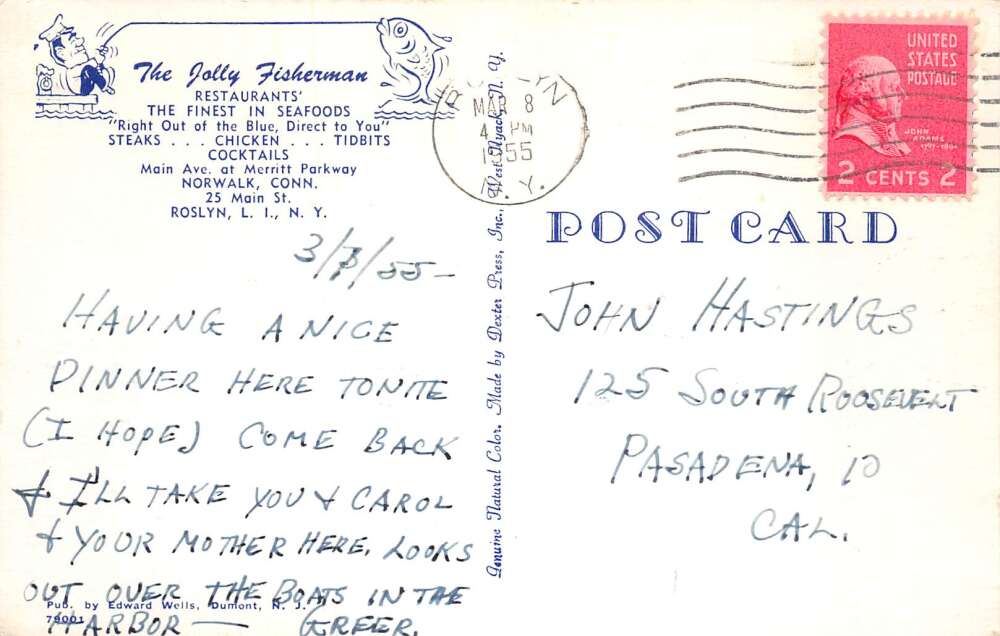 The Jolly Fisherman
RESTAURANTS'
THE FINEST IN SEAFOODS
"Right Out of the Blue, Direct to You"
STEAKS . . . CHICKEN . . . TIDBITS
COCKTAILS
Main Ave. at Merritt Parkway
NORWALK, CONN.
25 Main St.
ROSLYN, L. I., N. Y.
3/7/55-
HAVING A NICE
DINNER HERE TONITE
(I HOPE) COME BACK
& I'LL TAKE YOU & CAROL
& YOUR MOTHER HERE. LOOKS
OUT OVER THE BOATS IN THE
HARBOR — GREER.
Pub. by Edward Wells, Dumont, N. J.
79001
Genuine Natural Color. Made by Dexter Press, Inc., West Nyack, N. Y.
ROSLYN
MAR 8
4 PM
1955
N. Y.
UNITED
STATES
POSTAGE
JOHN
ADAMS
2 CENTS 2
POST CARD
JOHN HASTINGS
125 SOUTH ROOSEVELT
PASADENA, 10
CAL.